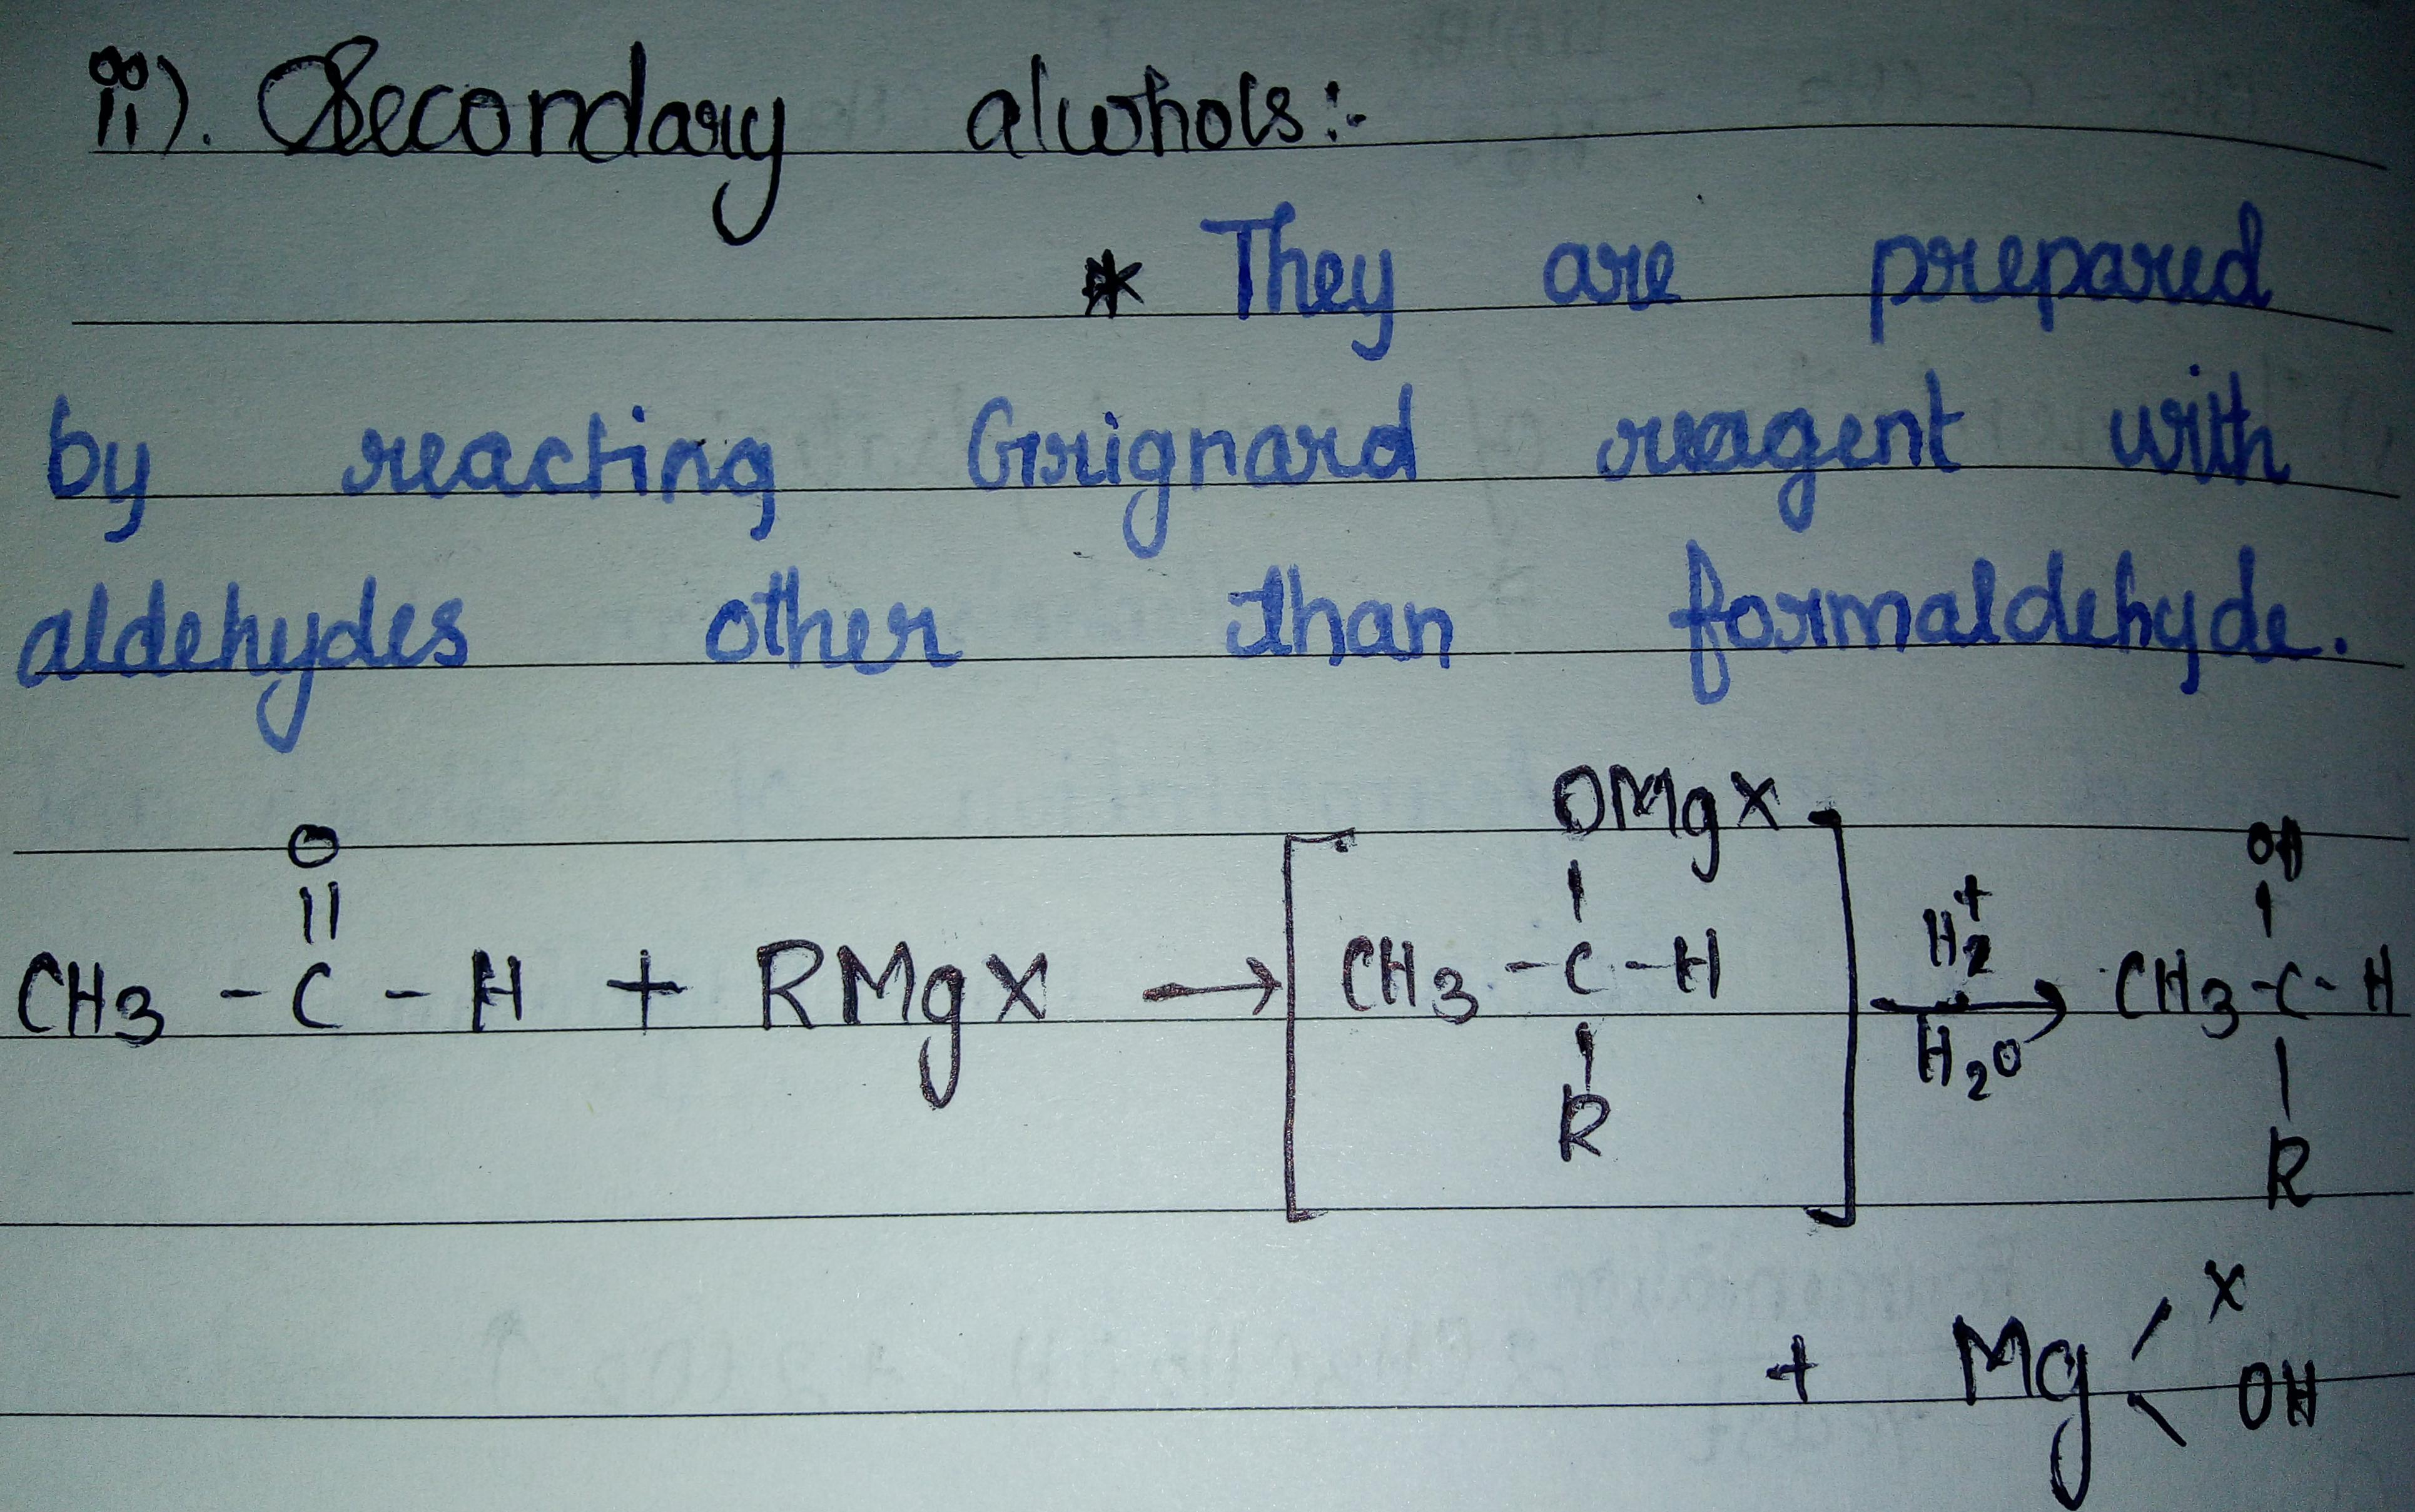 ii). Secondary alcohols:-
* They are prepared
by reacting Grignard reagent with
aldehydes other than formaldehyde.
O OMgX OH
|| | H2+ |
CH3 - C - H + RMgX → [ CH3 - C - H ] → CH3 - C - H
| H2O |
R R
+ Mg < X
OH